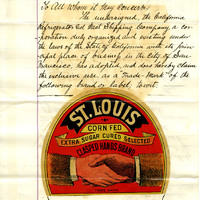 To All whom it may Concern:
The undersigned, the California
Refrigerator Car Meat Shipping Company, a cor-
poration duly organized and existing under
the laws of the State of California with its prin-
cipal place of business in the City of San
Francisco, has adopted, and does hereby claim
the exclusive use as a Trade-Mark of the
following brand or label, to wit:
ST. LOUIS
CORN FED
EXTRA SUGAR CURED SELECTED
CLASPED HANDS BRAND